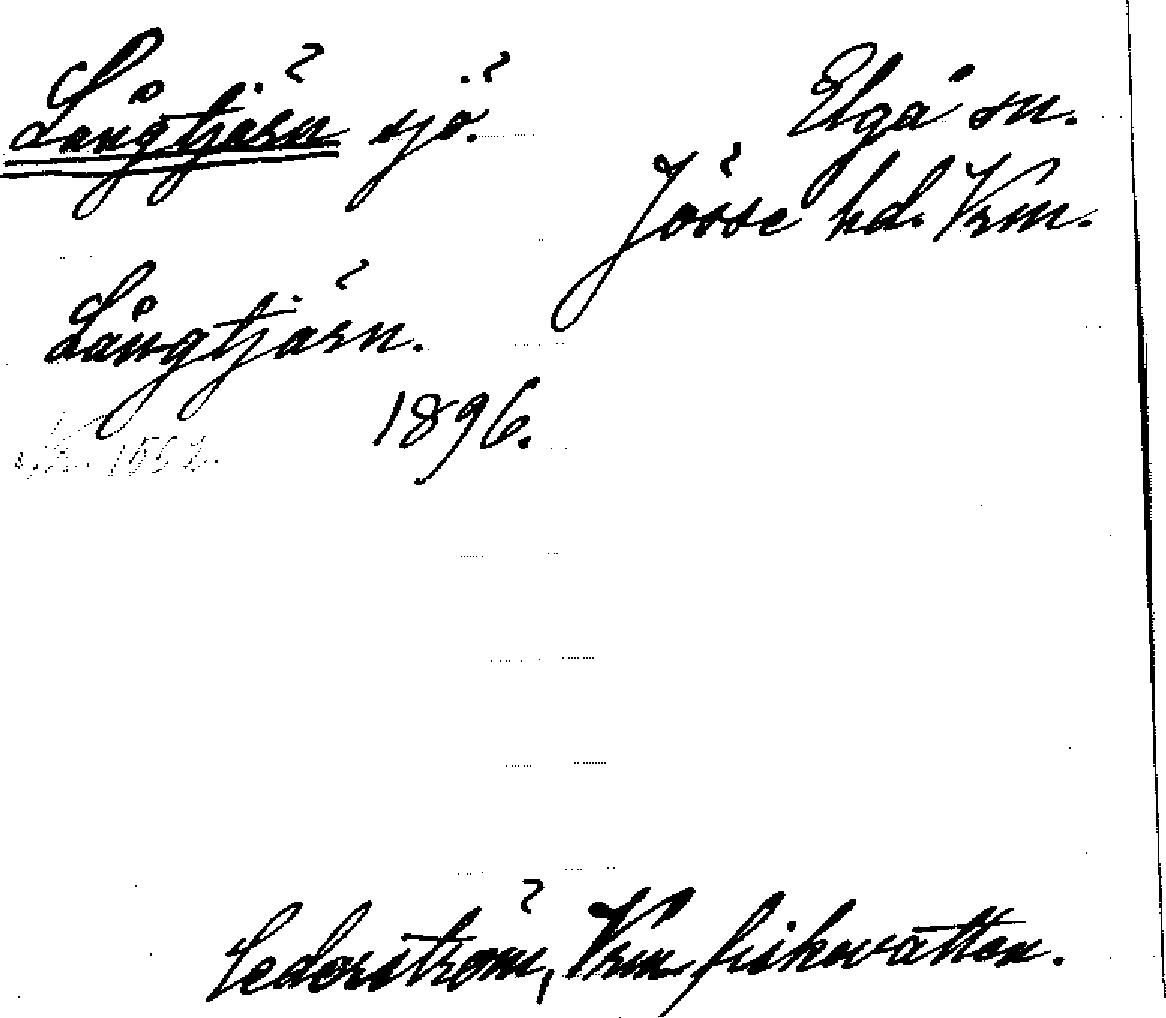 Långtjärn sjö.
Elgå sn.
Jösse hd. Vrm.
Långtjärn.
1896.
Cederström, Vrm fiskevatten.